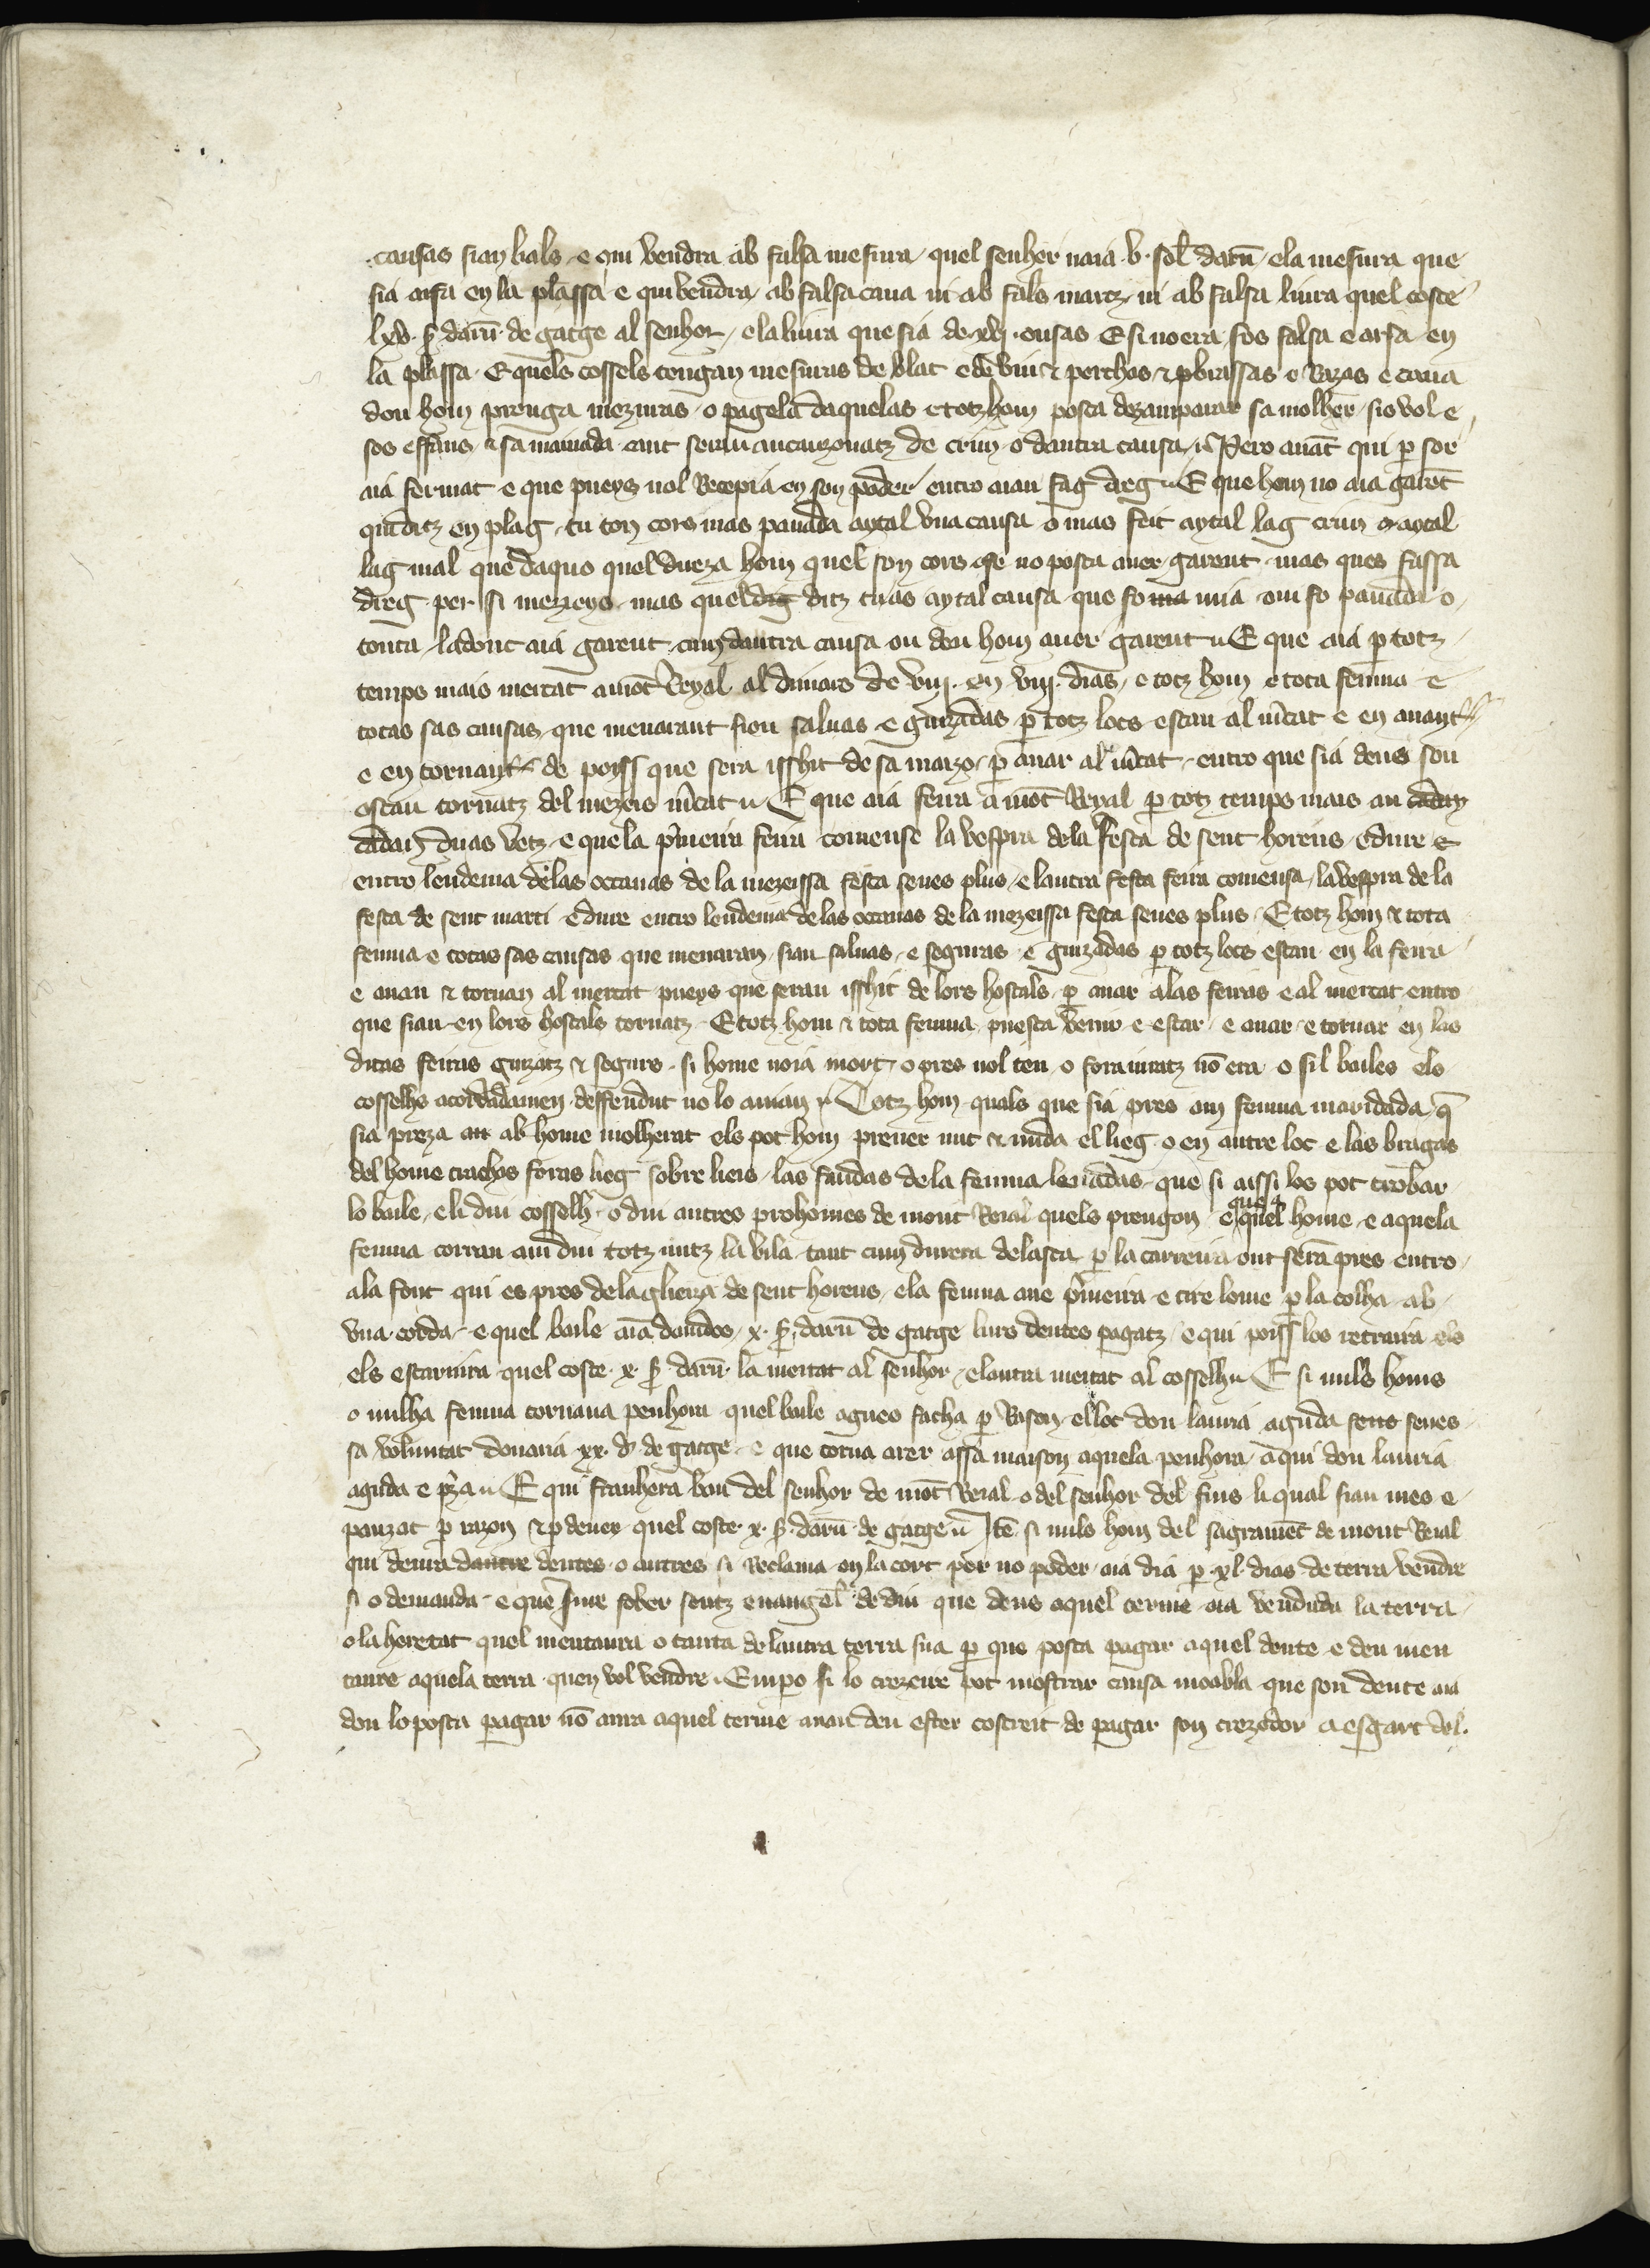 causas sian bals e qui vendra ab falsa mesura quel senher naia v sol darn̄ e la mesura que
sia arsa en la plassa e qui vendra ab falsa cana ni ab fals martz ni ab falsa liura quel coste
lxv s darn̄ de gatge al senhor e la liura que sia de xvi onsas E si no era fos falsa e arsa en
la plassa E quels cossels tengan mesuras de blat e de vin & perchas & brassas e Razas e cana
don hom prenga mezuras o pagela daquelas e totz hom posca dezamparar sa molher sio vol e
sos effans & sa mainada cant seran ancaizonatz de crim o dautra causa Pero auāt qui p sor
aia fermat e que pueys nol Recepia en son poder entro aian fag dreg E que hom no aia garēt
quā ditz en plag tu ton cors mas panada aytal una causa o mas feit aytal lag crim o aytal
lag mal que daquo quel dueza hom quel son cors ofe no posca auer garent mas ques fassa
dreg per si mezeys mas quel dig ditz tuas aytal causa que fo ma mia om fo panada o
touta ladonc aia garent cum dautra causa on deu hom auer garent E que aia p totz
temps mais mercat a mōt Reyal al dimars de viij en viij dias e totz hom e tota femna e
totas sas causas que menarant sion saluas e guizadas p totz locs estan al mcat e en anant
e en tornant de poiss que sera isshit de sa maizo p anar al mcat entro que sia dens son
ostau tornatz del mezeis mcat E que aia feira a mōt Reyal p totz temps mais an cadan
cadan duas vetz e que la pmeira feira comense la vespra de la festa de sent horens e dure e
entro lendema de las octauas de la mezeissa festa senes plus e lautra festa feira comensa la vespra de la
festa de sent marti e dure entro lendema de las octauas de la mezeissa festa senes plus E totz hom & tota
femna e totas sas causas que menaran sian saluas e seguras e guizadas p totz locs estan en la feira
e anan & tornan al mercat pueys que seran isshit de lors hostals p anar a las feiras e al mercat entro
que sian en lors hostals tornatz E totz hom & tota femna puesca venir e estar e anar e tornar en las
ditas feiras guizatz & segurs si home noia mort o pres nol ten o foraiuratz nō era o sil bailes els
cosselhs acordadamen deffendut no lo auian Totz hom quals que sia pres am femna maridada q̄
sia preza an ab home molherat els pot hom prener nut & nuda el lieg o en autre loc e las bragas
del home trachas foras lieg sobre lieis las faudas de la femna leuadas que si aissi los pot trobar
lo baile e li dui cosselh o dui autres prohomes de mont Reial quels prengon e que aquel home e aquela
femna corran am dui totz nutz la vila tant cum durera de lasta p la carreira ont seran pres entro
a la font qui es pres de la glieiza de sent horens e la femna ane pmeira e tire lome p la colha ab
una corda e quel baile aia damdos x s darn̄ de gatge lurs deutes pagatz e qui poiss los retraira els
els escarnira quel coste x s darn̄ la meitat al senhor e lautra meitat al cosselh E si nuls homs
o nulha femna tornaua penhora quel baile agues facha p Rason el loc don lauria aguda sens senes
sa voluntat donaria xx d de gatge e que torna arer assa maison aquela penhora a qui don lauria
aguda e pza E qui franhera ban del senhor de mōt Reial o del senhor del fius li qual sian mes e
pauzat p razon & p deuer quel coste x s darn̄ de gatge Itē si nuls hom del sagramēt de mont Reial
qui deura dautre deutes o autres si Reclama en la cort per no poder aia dia p xl dias de terra vendre
si o demanda e que iure sober santz euangel de diu que dens aquel terme aia venduda la terra
o la heretat quel mentaura o tanta de lautra terra sua p que posca pagar aquel deute e deu men
taure aquela terra quen vol vendre Empo si lo crezeire pot mostrar causa moabla que son deute aia
don lo posca pagar nō aura aquel terme anan deu ester costreit de pagar son crezedor a esgart del